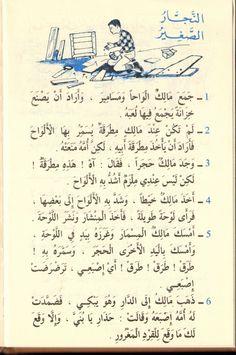 النَّجَّارُ
الصَّغِيرُ
1 – جَمَعَ مَالِكٌ أَلْوَاحاً وَمَسَامِيرَ ، وَأَرَادَ أَنْ يَصْنَعَ
خِزَانَةً يَجْمَعُ فِيهَا لُعَبَهُ .
2 – لَمْ تَكُنْ عِنْدَ مَالِكٍ مِطْرَقَةٌ يُسَمِّرُ بِهَا الْأَلْوَاحَ
فَأَرَادَ أَنْ يَأْخُذَ مِطْرَقَةَ أَبِيهِ ، لَكِنَّ أُمَّهُ مَنَعَتْهُ .
3 – وَجَدَ مَالِكٌ حَجَراً ، فَقَالَ : آهْ ! هَذِهِ مِطْرَقَةٌ !
لَكِنْ لَيْسَ عِنْدِي مِلْزَمٌ أَشُدُّ بِهِ الْأَلْوَاحَ .
4 – أَخَذَ مَالِكٌ خَيْطاً ، وَشَدَّ بِهِ الْأَلْوَاحَ إِلَى بَعْضِهَا ،
فَرَأَى لَوْحَةً طَوِيلَةً ، فَأَخَذَ الْمِنْشَارَ وَنَشَرَ اللَّوْحَةَ .
5 – أَمْسَكَ مَالِكٌ الْمِسْمَارَ وَغَرَزَهُ بِيَدٍ فِي اللَّوْحَةِ ،
وَأَمْسَكَ بِالْيَدِ الْأُخْرَى الْحَجَرَ ، وَسَمَّرَهُ بِهِ !
طَرَقْ ! طَرَقْ ! طَرَقْ ! أَيْ إِصْبَعِي ، تَرَضْرَضَتْ
إِصْبَعِي .
6 – ذَهَبَ مَالِكٌ إِلَى الدَّارِ وَهُوَ يَبْكِي ، فَضَمَّدَتْ
لَهُ أُمُّهُ إِصْبَعَهُ وَقَالَتْ : حَذَارِ يَا بُنَيَّ ، وَإِلَّا وَقَعَ
لَكَ مَا وَقَعَ لِلْقِرْدِ الْمَغْرُورِ .